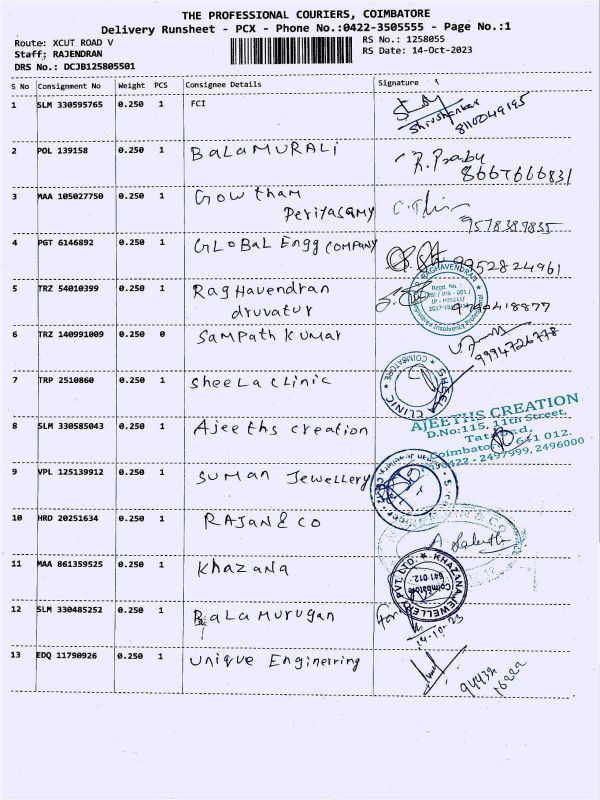 THE PROFESSIONAL COURIERS, COIMBATORE
Delivery Runsheet - PCX - Phone No.:0422-3505555 - Page No.:1
Route: XCUT ROAD V
RS No.: 1258055
Staff: RAJENDRAN
RS Date: 14-Oct-2023
DRS No.: DCJB125805501
S No Consignment No Weight PCS Consignee Details Signature
1 SLM 330595765 0.250 1 FCI
8110049195
2 POL 139158 0.250 1 BalaMURALi
R. Prabu
8667666831
3 MAA 105027750 0.250 1 Gowtham
Periyasamy
9578387835
4 PGT 6146892 0.250 1 GLOBaL Engg COMPANY
9952824961
5 TRZ 54010399 0.250 1 RagHavendran
druvatur
RAGHAVENDRAN
Regd. No.:
2017-18
Registered Insolvency Professional
6 TRZ 140991009 0.250 0 Sampath Kumar
9994726778
7 TRP 2510860 0.250 1 Sheela clinic
SHEELA CLINIC
COIMBATORE
8 SLM 330585043 0.250 1 Ajeeths creation
AJEETHS CREATION
D.No:115, 11th Street,
Coimbatore 641 012.
0422 - 2497999, 2496000
9 VPL 125139912 0.250 1 Suman Jewellery
10 HRD 20251634 0.250 1 RAJAN & CO
11 MAA 861359525 0.250 1 Khazana
KHAZANA JEWELLERY PVT. LTD.
Coimbatore
641 012
12 SLM 330485252 0.250 1 Bala Murugan
For
14-10-23
13 EDQ 11790926 0.250 1 Unique Enginerring
94432
16222